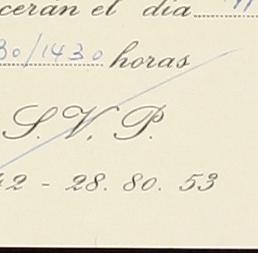 ceran el día
30/1430 horas
S. V. P.
42 - 28. 80. 53